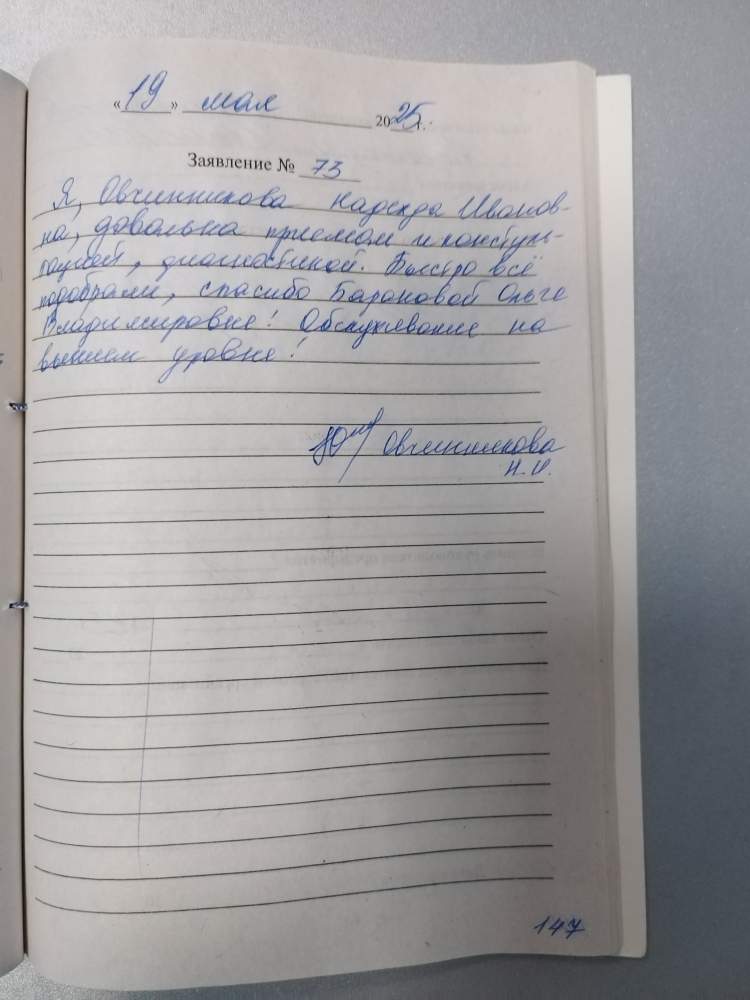 «19» мая 2025 г.
Заявление № 73
Я, Овчинникова Надежда Иванов-
на, довольна приемом и консуль-
тацией, диагностикой. Быстро всё
подобрали, спасибо Барановой Ольге
Владимировне! Обслуживание на
высшем уровне!
Овчинникова
Н.И.
147